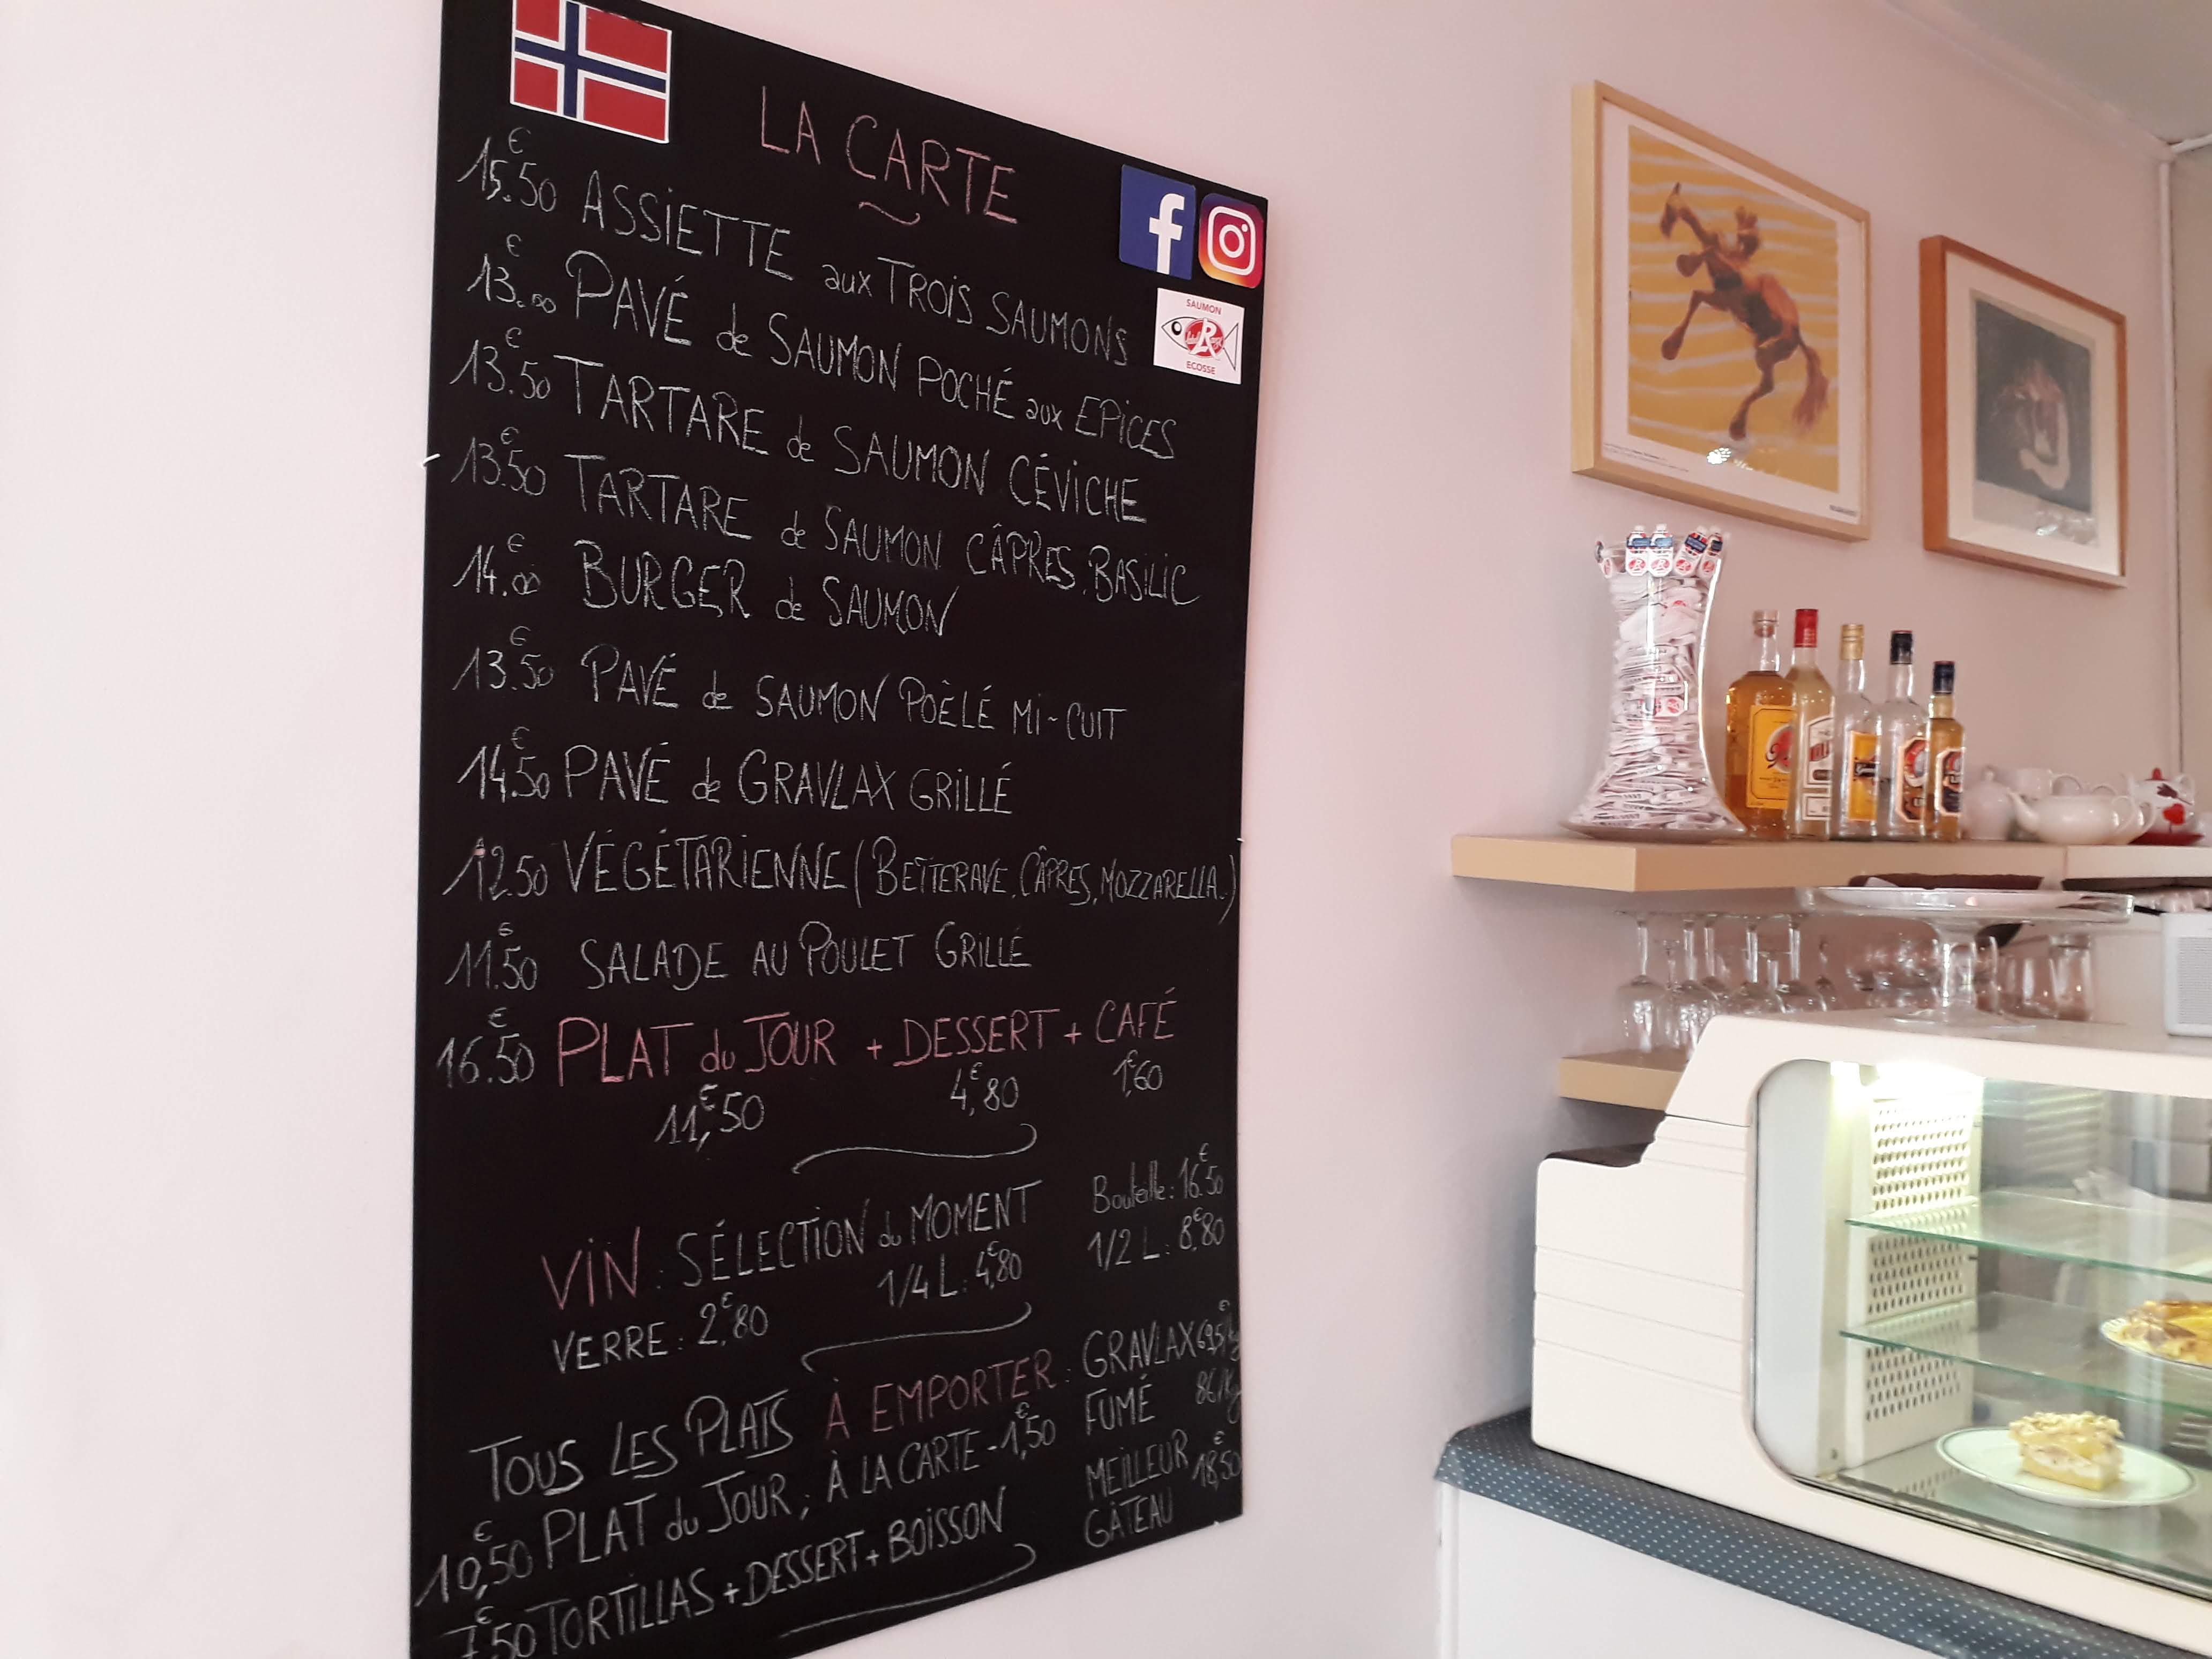 LA CARTE
15.50€ ASSIETTE aux TROIS SAUMONS
13.00€ PAVÉ de SAUMON POCHÉ aux EPICES
13.50€ TARTARE de SAUMON CÉVICHE
13.50€ TARTARE de SAUMON CÂPRES, BASILIC
14.00€ BURGER de SAUMON
13.50€ PAVÉ de SAUMON POÊLÉ MI-CUIT
14.50€ PAVÉ de GRAVLAX GRILLÉ
12.50 VÉGÉTARIENNE (BETTERAVE, CÂPRES, MOZZARELLA..)
11.50€ SALADE AU POULET GRILLÉ
16.50€ PLAT du JOUR + DESSERT + CAFÉ
11,€50 4,€80 1€60
VIN : SÉLECTION du MOMENT
VERRE : 2,€80 1/4 L : 4,€80
Bouteille : 16.€50
1/2 L : 8,€80
TOUS LES PLATS À EMPORTER :
10,50€ PLAT du JOUR ; À LA CARTE -1,€50
7,50€ TORTILLAS + DESSERT + BOISSON
GRAVLAX 69,5€/kg
FUMÉ 86/kg
MEILLEUR GÂTEAU 18,€50
SAUMON
ECOSSE
f